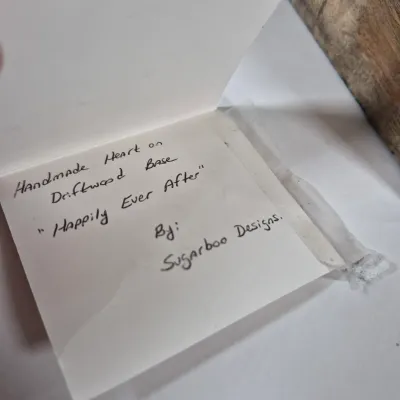 Handmade Heart on
Driftwood Base
"Happily Ever After"
By:
Sugarboo Designs.